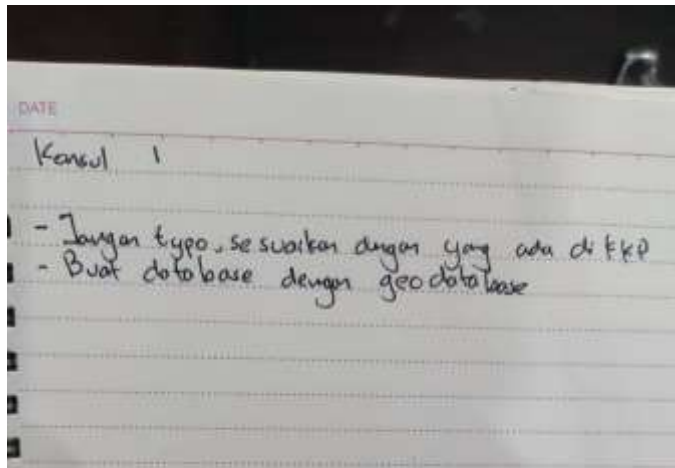 DATE
Konsul 1
- Jangan typo, sesuaikan dengan yang ada di KKP
- Buat database dengan geodatabase